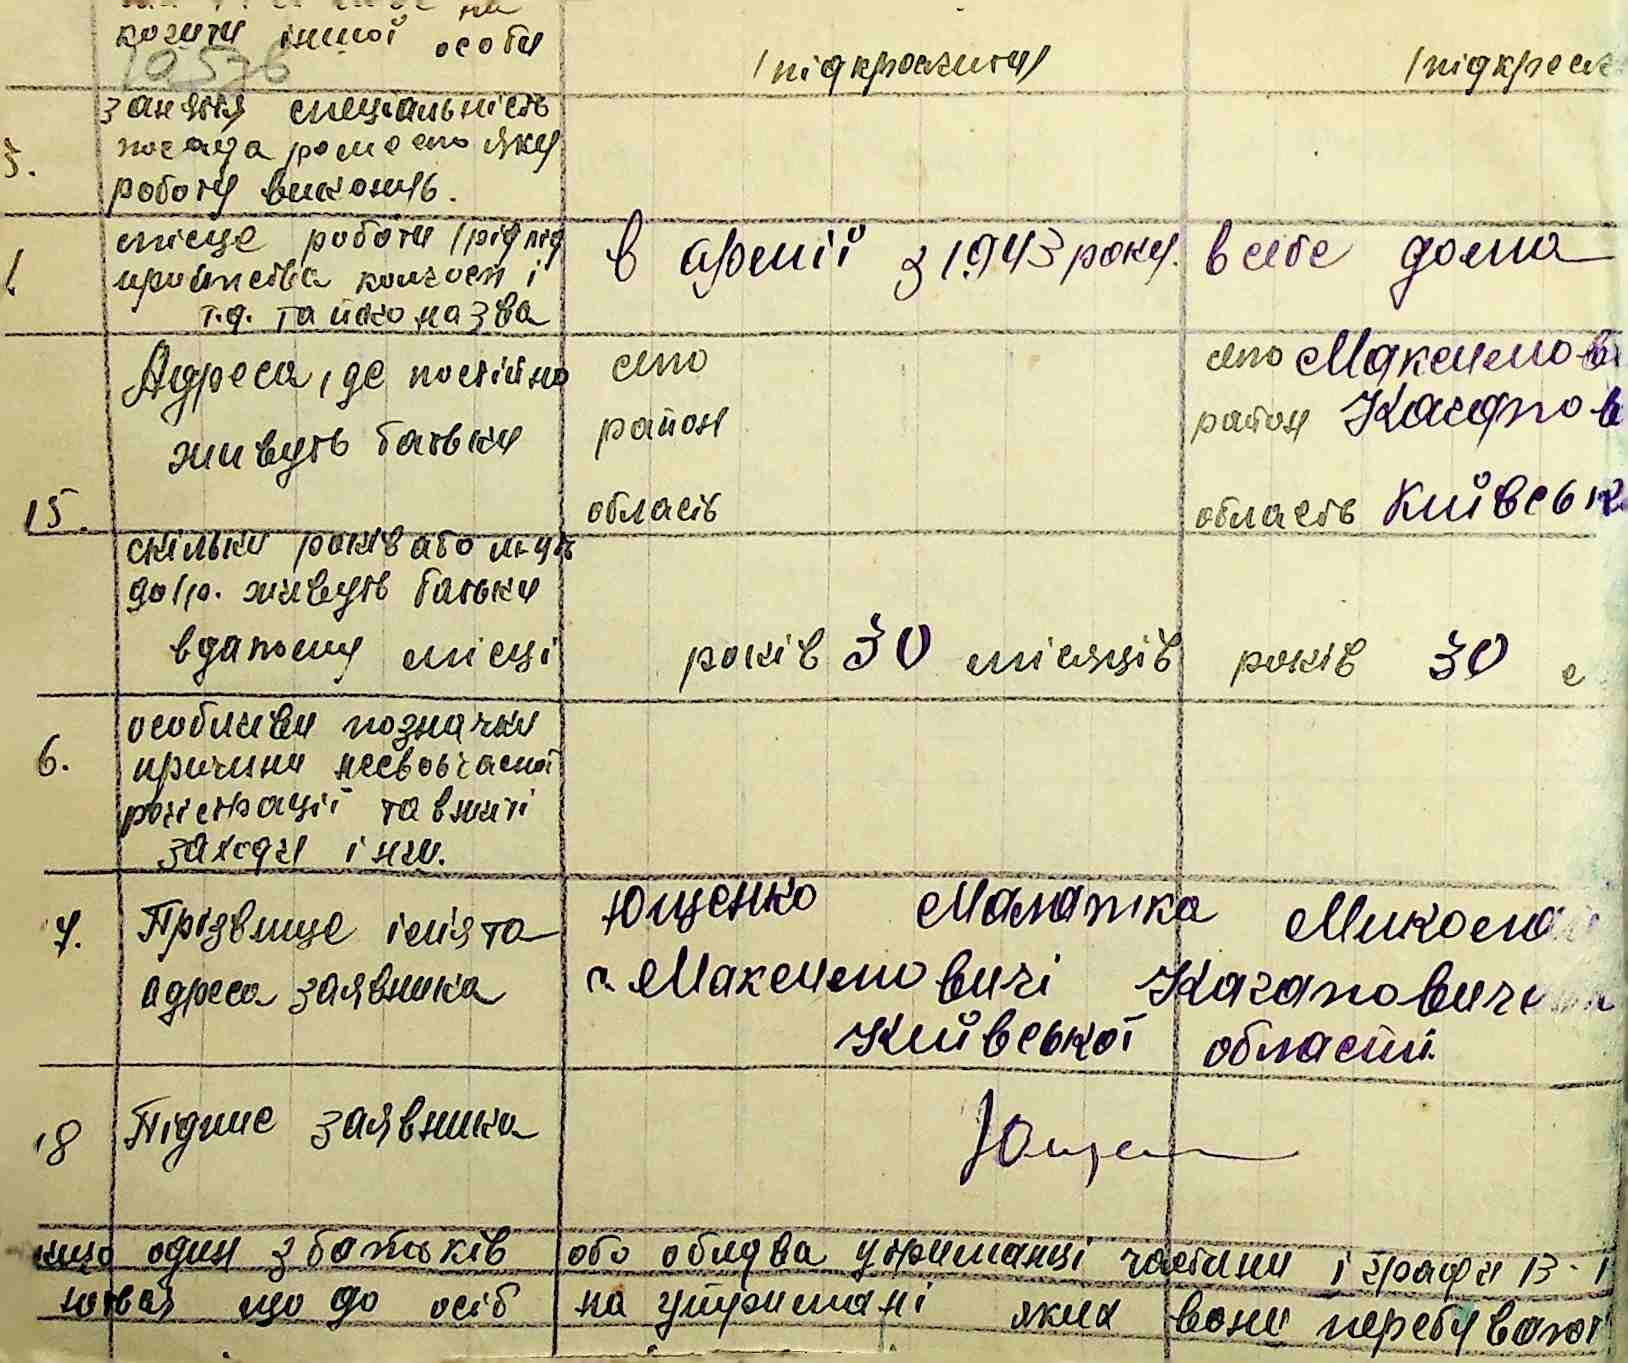 кошти іншої особи
10576
/підкреслити/ /підкресл
заняття спеціальність
посада ремесло яку
роботу виконує.
5.
місце роботи /підпід
приємства колгосп і
т.д. та його назва
в армії з 1943 року. в себе дома
Адреса, де постійно
живуть батьки
15.
село село Максимови
район район Каганов
область область Київськ
скільки років або м-ців
до 1 р. живуть батьки
в даному місці
років 30 місяців років 30
6.
особливи позначки
причини несвоєчасної
реєстрації та вжиті
заходи і нш.
7. Прізвище імія та
адреса заявника
Ющенко Маланка Микола
с. Максимовичі Каганович
Київської області.
18 Підпис заявника
Ющен
один з батьків або обидва утриманці частини і графи 13-1
що до осіб на утримані яких вони перебувают